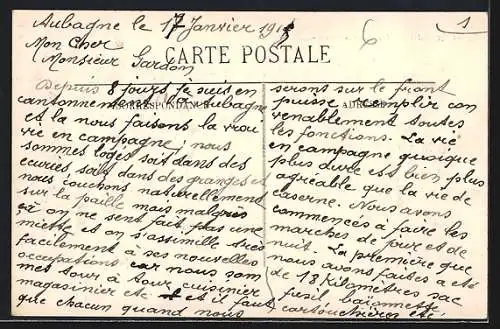 Aubagne le 17 Janvier 191
1
Mon Cher
Monsieur Gardon
CARTE POSTALE
CORRESPONDANCE
ADRESSE
Depuis 8 jours je suis en
cantonnement à Aubagne
et la nous faisons la vrai
vie en campagne; nous
sommes logés soit dans des
ecuries, soit dans des granges et
nous couchons naturellement
sur la paille mais malgrès
on ne sent fait pas une
miette et on s'assimille très
facilement à ses nouvelles
occupations car nous som
mes tour à tour cuisinier
magasinier etc et il faut
que chacun quand nous
serons sur le front
puisse remplir con
venablement toutes
les fonctions. La vie
en campagne quoique
plus dure est bien plus
agréable que la vie de
caserne. Nous avons
commencés à faire les
marches de jour et de
nuit. La première que
nous avons faites a ét
de 18 Kilomètres sac
fusil baïonnette
cartouchières etc